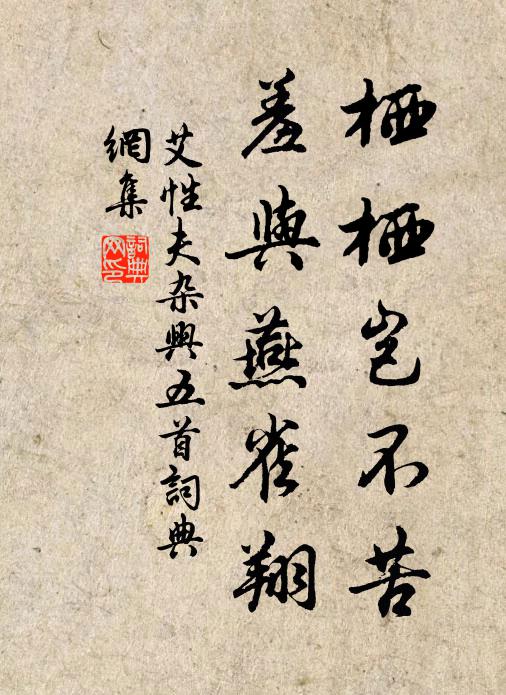 栖栖岂不苦
羞與燕雀翔
艾性夫杂興五首詞典
網集
詞典网印